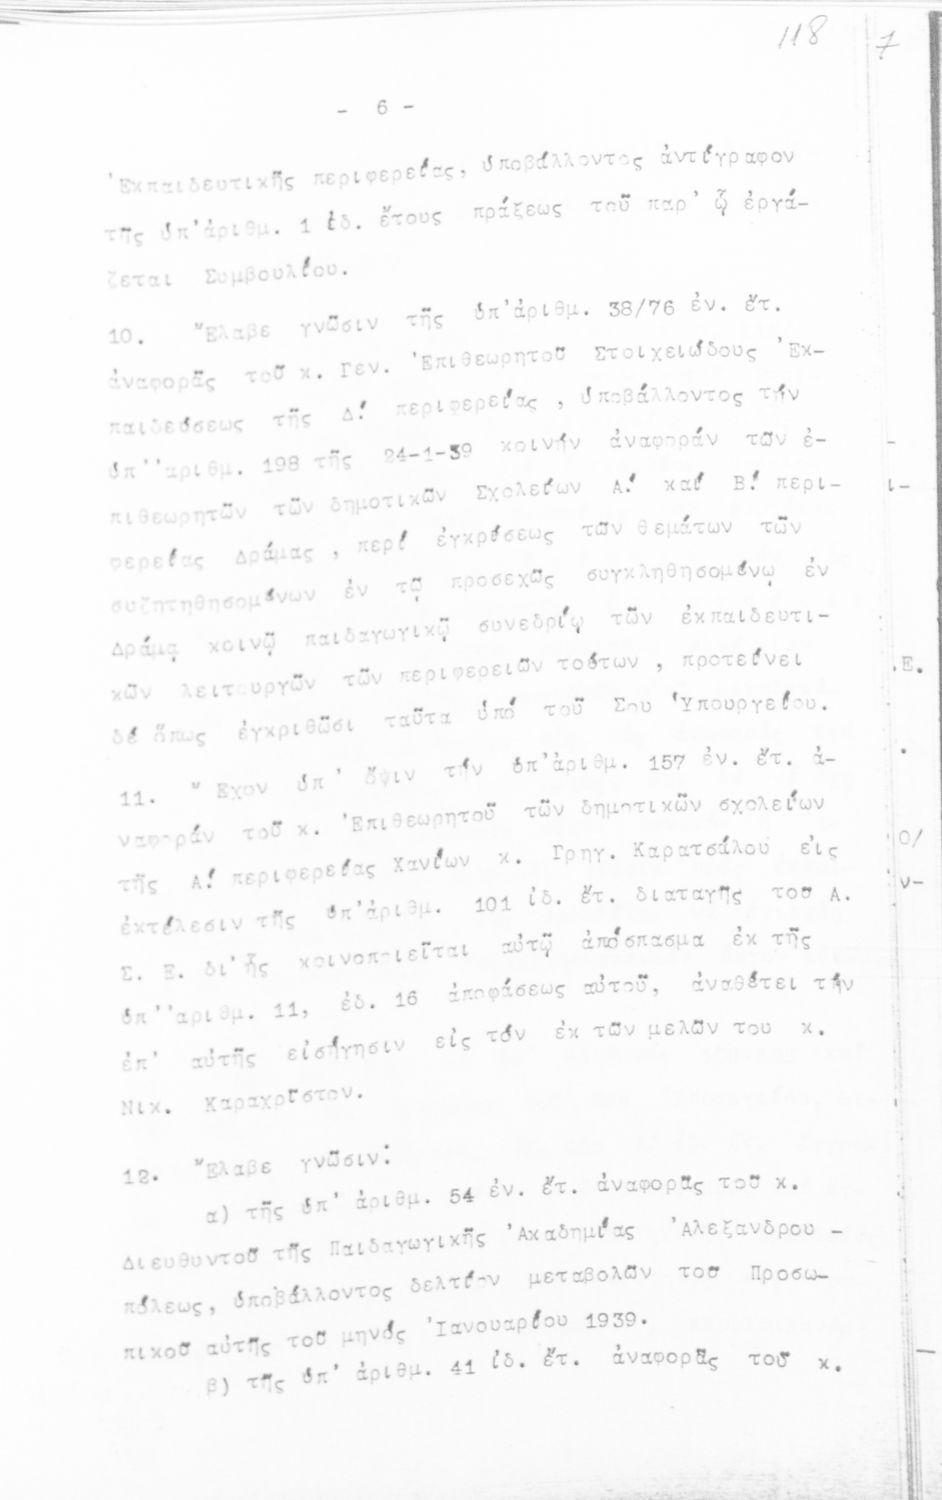 118 7
- 6 -
Ἐκπαιδευτικῆς περιφερείας, ὑποβάλλοντος ἀντίγραφον
τῆς ὑπ'ἀριθμ. 1 ἰδ. ἔτους πράξεως τοῦ παρ' ᾧ ἐργά-
ζεται Συμβουλίου.
10. Ἔλαβε γνῶσιν τῆς ὑπ'ἀριθμ. 38/76 ἐν. ἔτ.
ἀναφορᾶς τοῦ κ. Γεν. Ἐπιθεωρητοῦ Στοιχειώδους Ἐκ-
παιδεύσεως τῆς Δ! περιφερείας, ὑποβάλλοντος τήν
ὑπ''αριθμ. 198 τῆς 24-1-39 κοινήν ἀναφοράν τῶν ἐ-
πιθεωρητῶν τῶν δημοτικῶν Σχολείων Α! καί Β! περι-
φερείας Δράμας, περί ἐγκρίσεως τῶν θεμάτων τῶν
συζητηθησομένων ἐν τῷ προσεχῶς συγκληθησομένῳ ἐν
Δράμᾳ κοινῷ παιδαγωγικῷ συνεδρίῳ τῶν ἐκπαιδευτι-
κῶν λειτουργῶν τῶν περιφερειῶν τούτων, προτείνει
δέ ὅπως ἐγκριθῶσι ταῦτα ὑπό τοῦ Σου Ὑπουργείου.
11. Ἔχον ὑπ' ὄψιν τήν ὑπ'ἀριθμ. 157 ἐν. ἔτ. ἀ-
ναφοράν τοῦ κ. Ἐπιθεωρητοῦ τῶν δημοτικῶν σχολείων
τῆς Α! περιφερείας Χανίων κ. Γρηγ. Καρατσάλου εἰς
ἐκτέλεσιν τῆς ὑπ'ἀριθμ. 101 ἰδ. ἔτ. διαταγῆς τοῦ Α.
Σ. Ε. δι'ἧς κοινοποιεῖται αὐτῷ ἀπόσπασμα ἐκ τῆς
ὑπ''αριθμ. 11, ἐδ. 16 ἀποφάσεως αὐτοῦ, ἀναθέτει τήν
ἐπ' αὐτῆς εἰσήγησιν εἰς τόν ἐκ τῶν μελῶν του κ.
Νικ. Καραχρῖστον.
12. Ἔλαβε γνῶσιν:
α) τῆς ὑπ' ἀριθμ. 54 ἐν. ἔτ. ἀναφορᾶς τοῦ κ.
Διευθυντοῦ τῆς Παιδαγωγικῆς Ἀκαδημίας Ἀλεξανδρου -
πόλεως, ὑποβάλλοντος δελτίον μεταβολῶν τοῦ Προσω-
πικοῦ αὐτῆς τοῦ μηνός Ἰανουαρίου 1939.
β) τῆς ὑπ' ἀριθμ. 41 ἰδ. ἔτ. ἀναφορᾶς τοῦ κ.